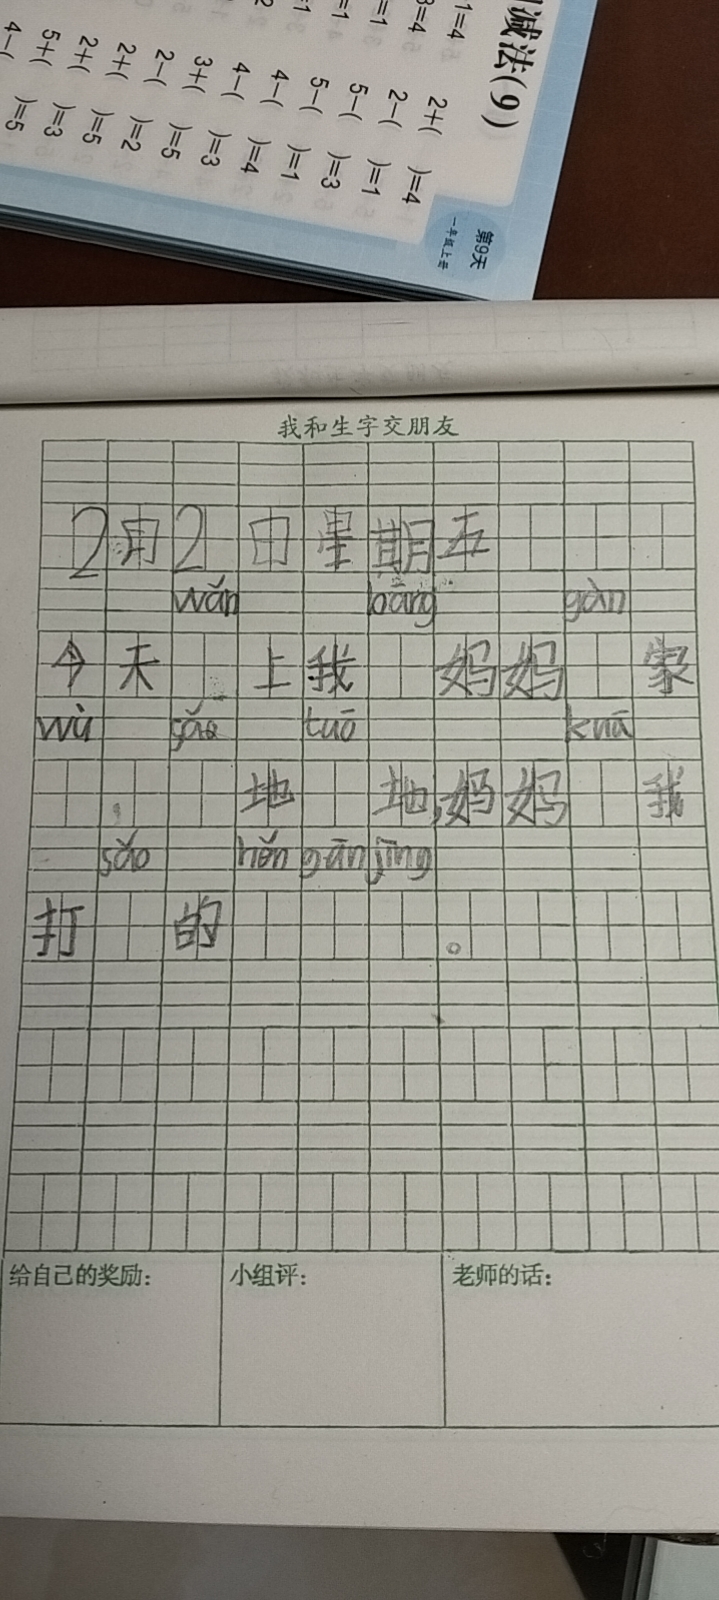 减法(9)
第9天
一年级上册
2+( )=4
2-( )=1
5-( )=3
5-( )=1
4-( )=4
4-( )=3
3+( )=5
2-( )=2
2+( )=5
2+( )=3
5+( )=5
我和生字交朋友
2月2日星期五
wǎn bāng gàn
今天 上我 妈妈 家
wù sǎo tuō kuā
地 地,妈妈 我
sǎo hěn gān jìng
打 的 。
给自己的奖励: 小组评: 老师的话: